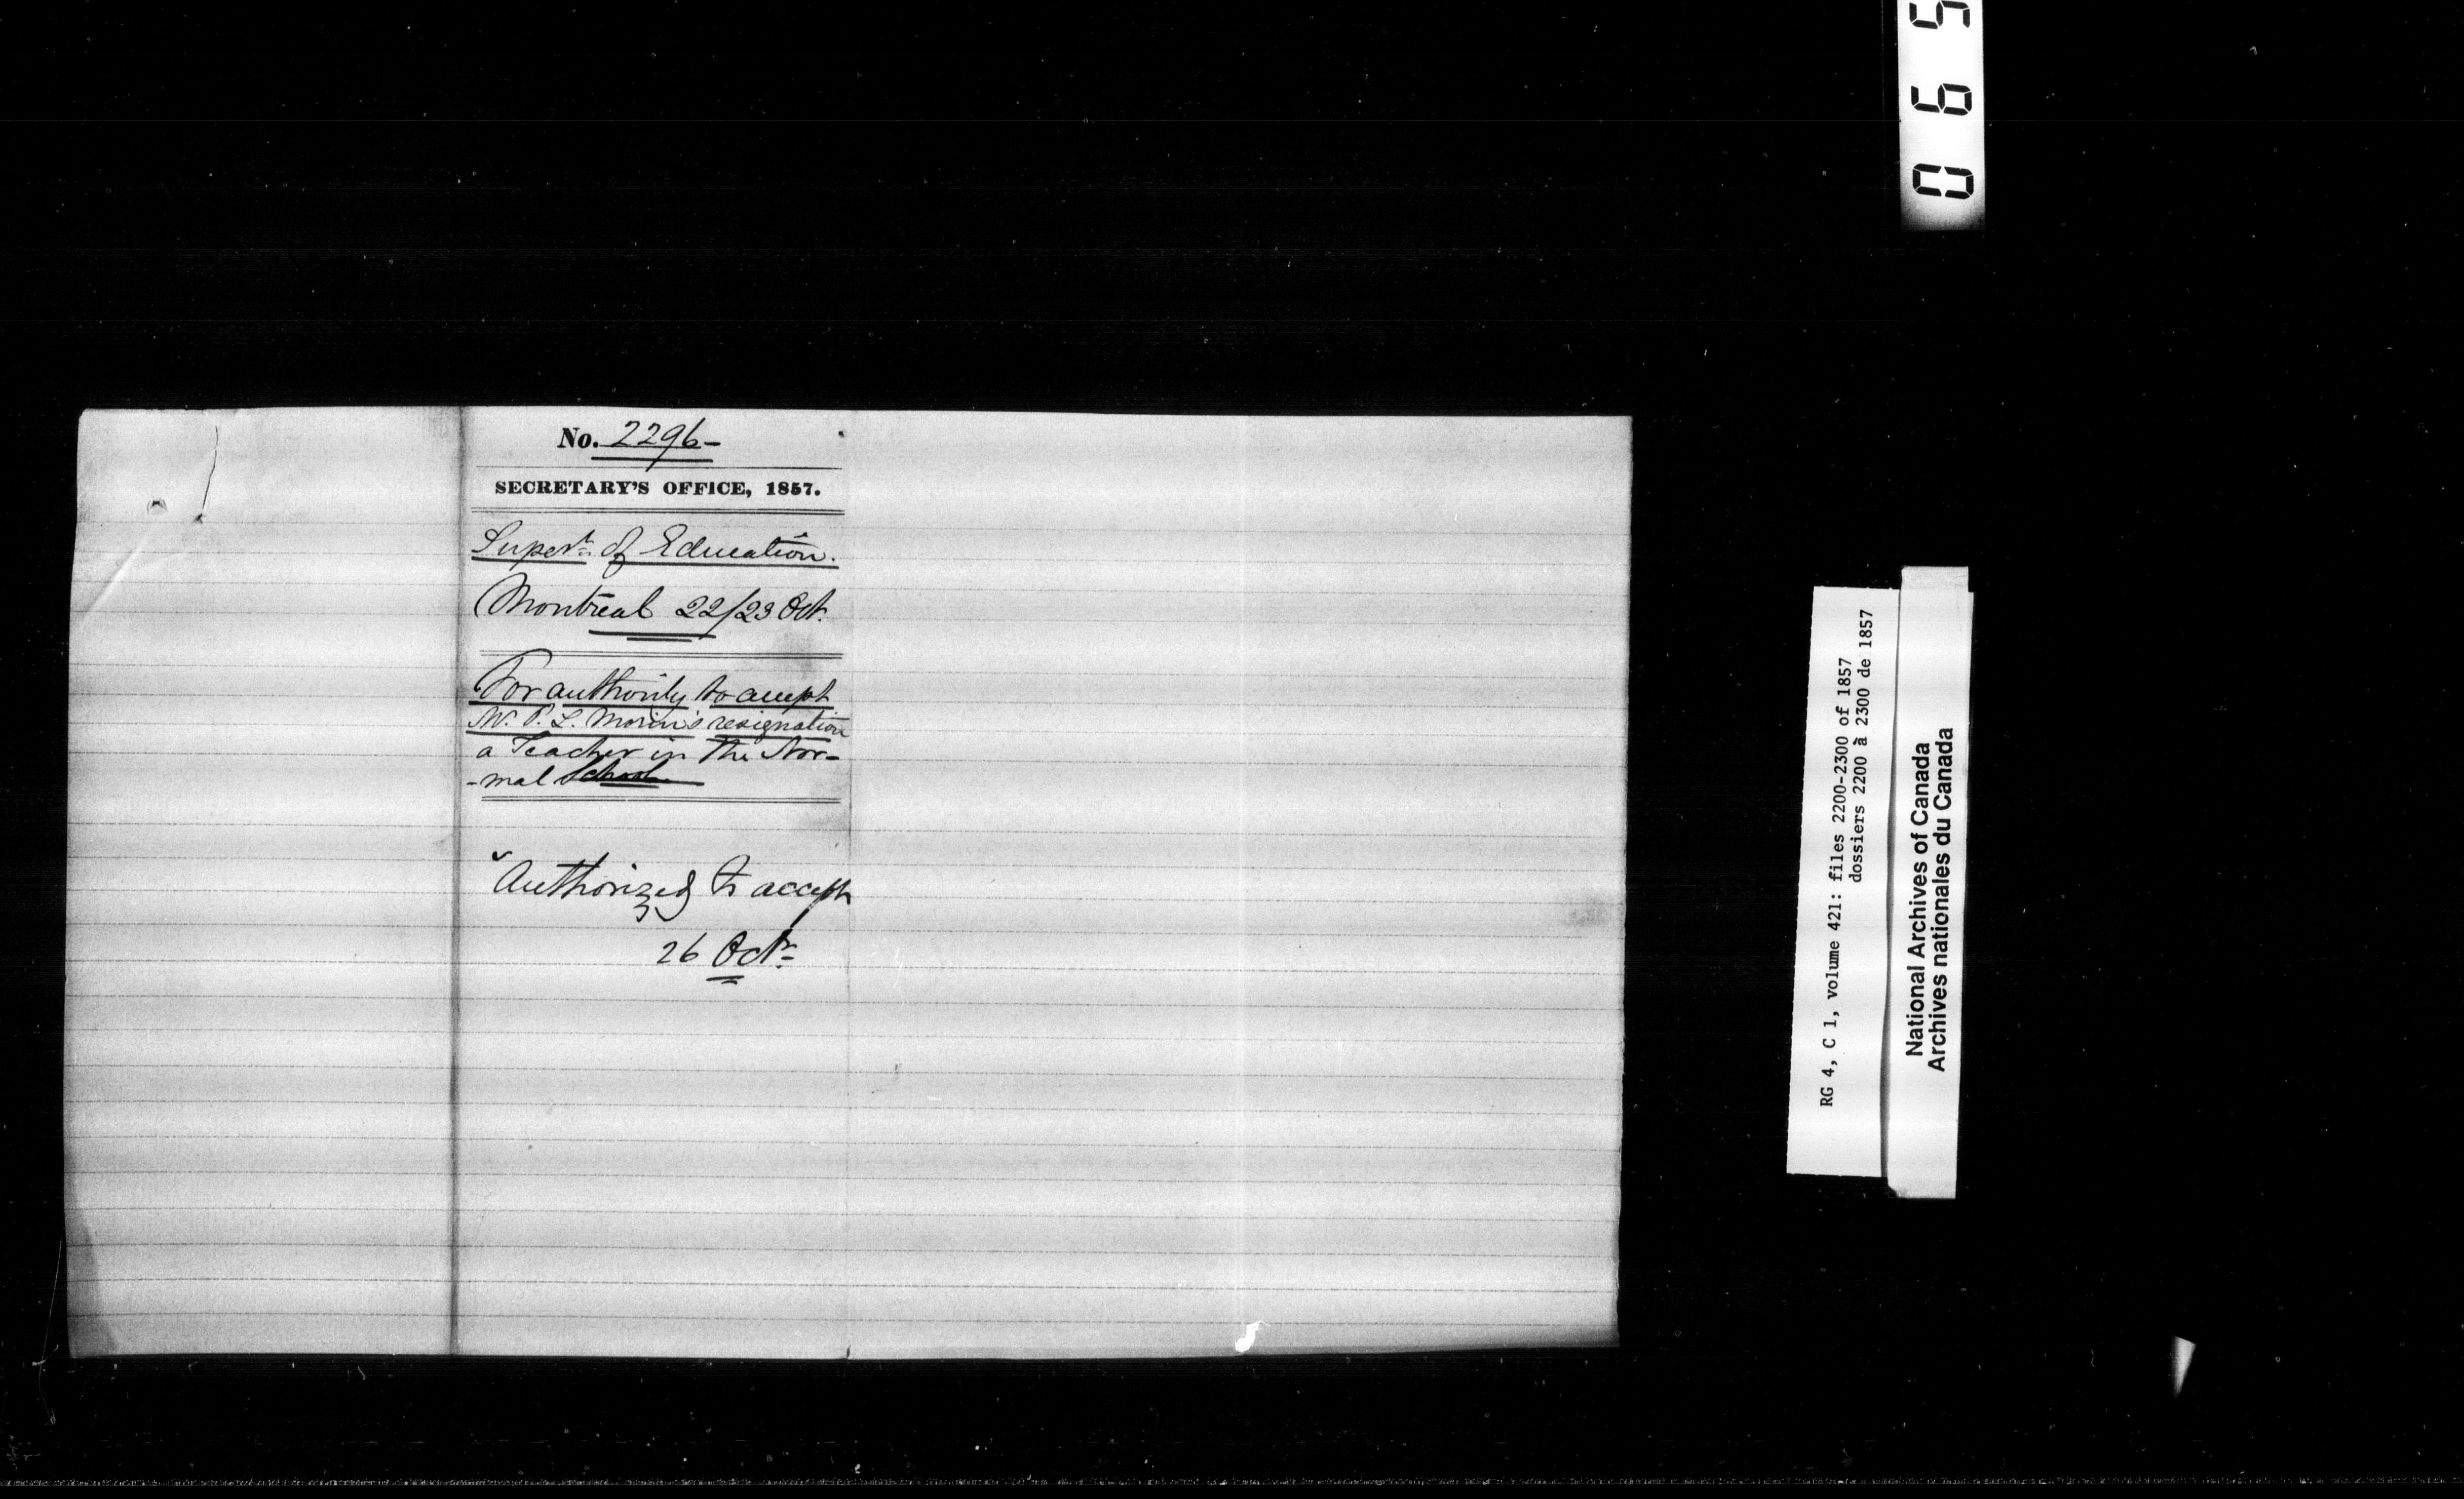 No. 2296-
SECRETARY'S OFFICE, 1857.
Supert. of Education.
Montreal 22/23 Oct.
For authority to accept
M. P. L. Morin's resignation
a Teacher in the Nor-
-mal School
Authorized to accept
26 Octr
0 6 5
RG 4, C 1, volume 421: files 2200-2300 of 1857
dossiers 2200 à 2300 de 1857
National Archives of Canada
Archives nationales du Canada